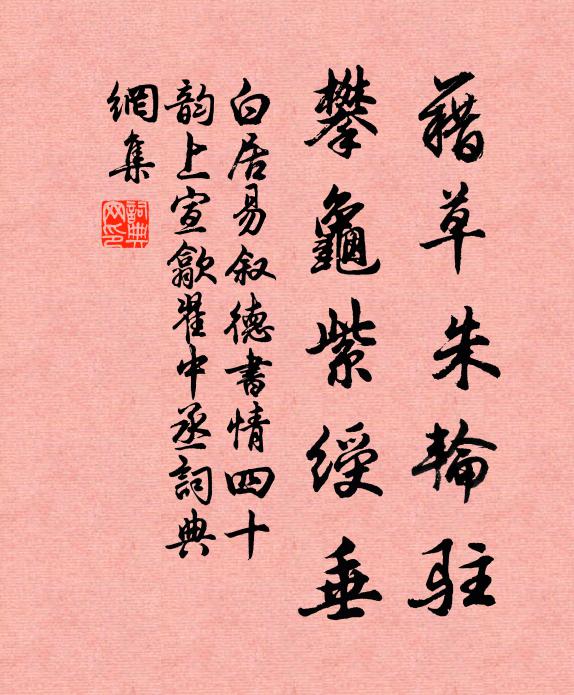 藉草朱輪駐
攀龜紫綬垂
白居易叙德書情四十
韵上宣歙翟中丞詞典
網集
詞典
网印